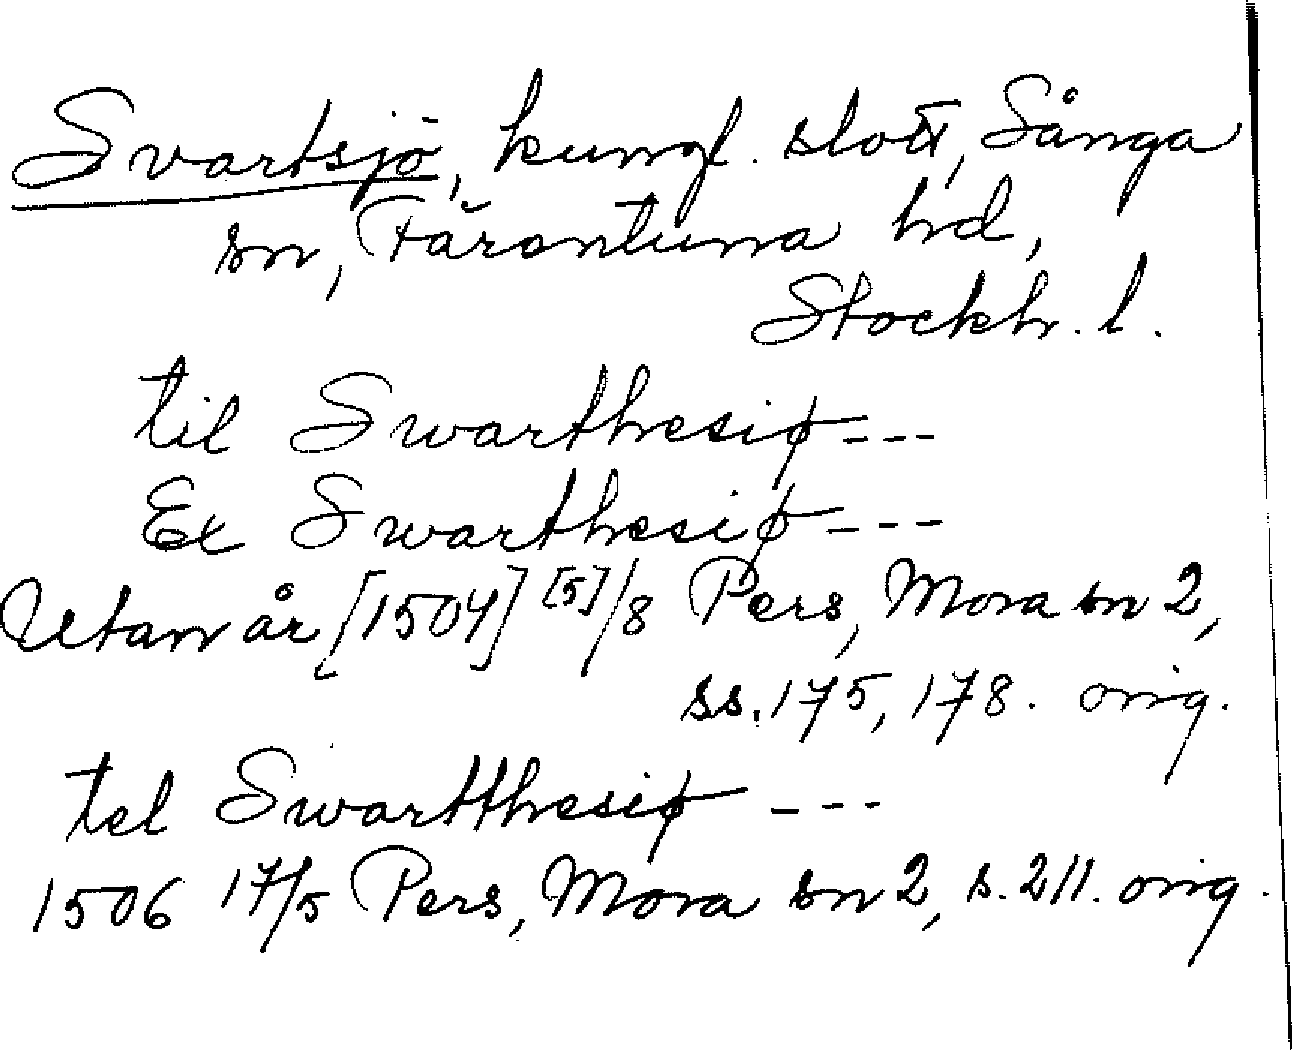 Svartsjö, kungl. slott, Sånga
sn, Färentuna hd,
Stockh. l.
til Swarthesiø ---
Ex Swarthesiø ---
Utan år [1504] [5]/8 Pers, Mora sn 2,
ss. 175, 178. orig.
tel Swartthesiø ---
1506 17/5 Pers, Mora sn 2, s. 211. orig.